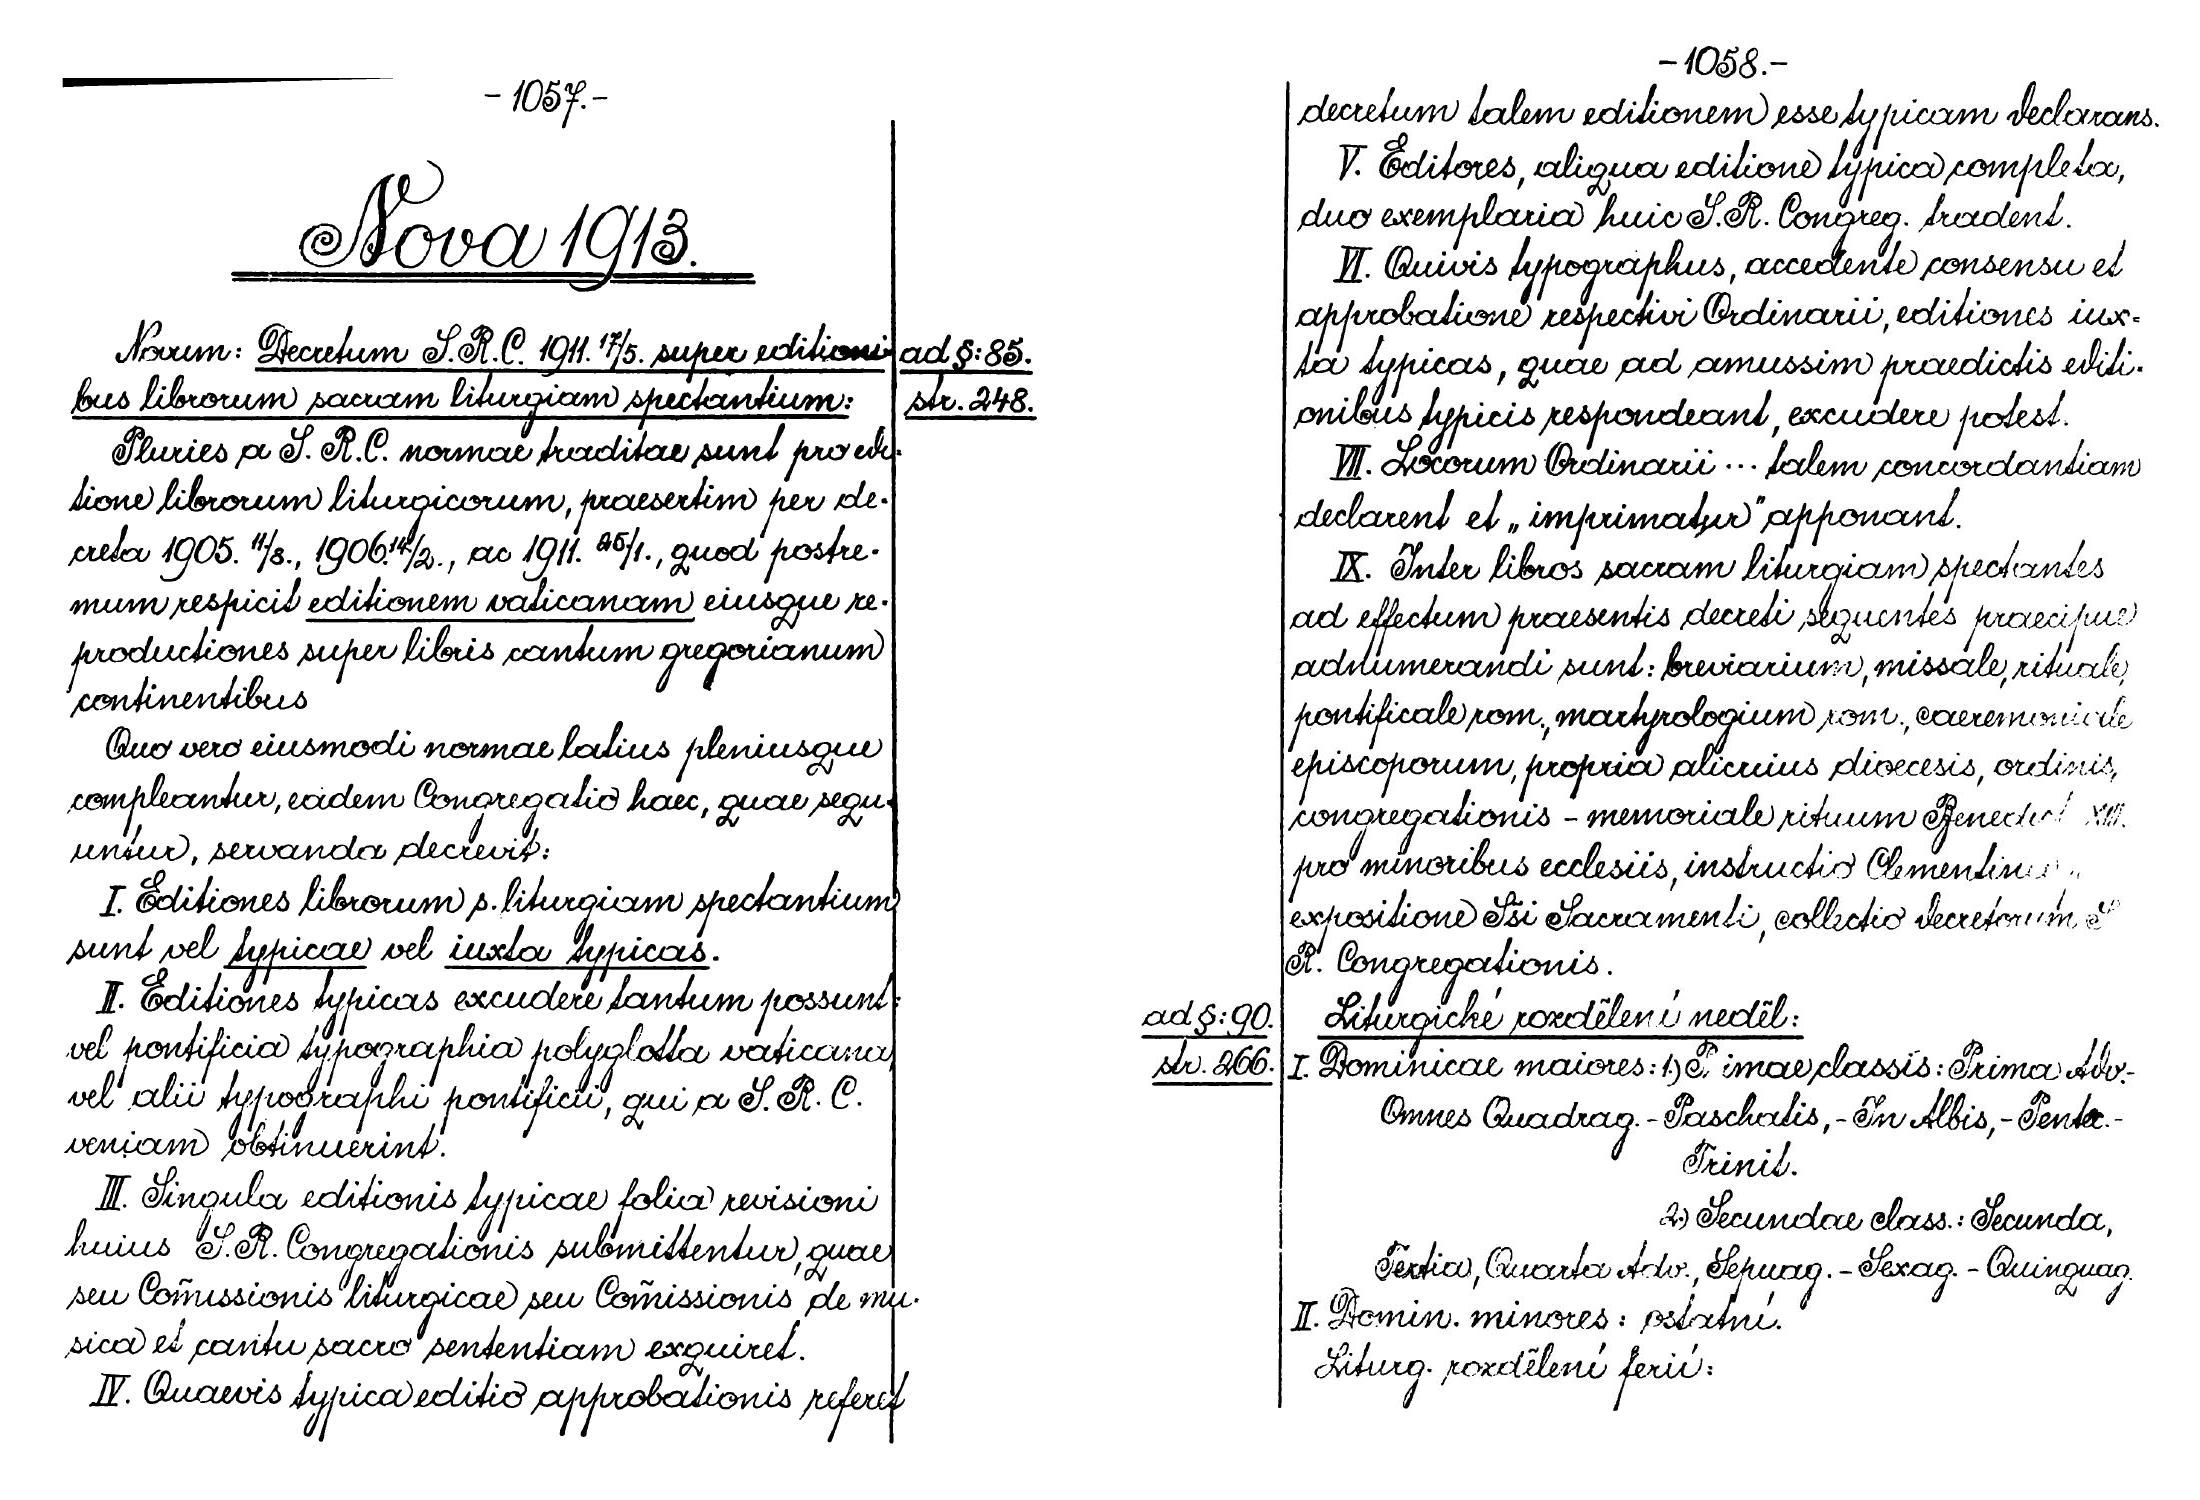 - 1057. -
Nova 1913.
Novum: Decretum S. R. C. 1911. 17/5. super editioni
ad §: 85.
bus librorum sacram liturgiam spectantium:
str. 248.
Pluries a S. R. C. normae traditae sunt pro edi-
tione librorum liturgicorum, praesertim per de-
creta 1905. 11/8., 1906. 14/2., ac 1911. 25/1., quod postre-
mum respicit editionem vaticanam eiusque re-
productiones super libris cantum gregorianum
continentibus
Quo vero eiusmodi normae latius pleniusque
compleantur, eadem Congregatio haec, quae sequ-
untur, servanda decrevit:
I. Editiones librorum s. liturgiam spectantium
sunt vel typicae vel iuxta typicas.
II. Editiones typicas excudere tantum possunt:
vel pontificia typographia polyglotta vaticana,
vel alii typographi pontificii, qui a S. R. C.
veniam obtinuerint.
III. Singula editionis typicae folia revisioni
huius S. R. Congregationis submittentur, quae
seu Com̃issionis liturgicae seu Com̃issionis de mu-
sica et cantu sacro sententiam exquiret.
IV. Quaevis typica editio approbationis referet
- 1058. -
decretum talem editionem esse typicam declarans.
V. Editores, aliqua editione typica completa,
duo exemplaria huic S. R. Congreg. tradent.
VI. Quivis typographus, accedente consensu et
approbatione respectivi Ordinarii, editiones iux=
ta typicas, quae ad amussim praedictis editi-
onibus typicis respondeant, excudere potest.
VII. Locorum Ordinarii ... talem concordantiam
declarent et „imprimatur" apponant.
IX. Inter libros sacram liturgiam spectantes
ad effectum praesentis decreti sequentes praecipue
adnumerandi sunt: breviarium, missale, rituale,
pontificale rom., martyrologium rom., caeremoniale
episcoporum, propria alicuius dioecesis, ordinis,
congregationis - memoriale rituum Benedict XIII.
pro minoribus ecclesiis, instructio Clementina
expositione S̃si Sacramenti, collectio decretorum S
R. Congregationis.
ad §: 90.
Liturgické rozdělení neděl:
str. 266.
I. Dominicae maiores: 1.) Primae classis: Prima Adv.-
Omnes Quadrag. - Paschatis, - In Albis, - Pente. -
Trinit.
2.) Secundae class.: Secunda,
Tertia, Quarta Adv., Sepuag. - Sexag. - Quinquag.
II. Domin. minores: ostatní.
Liturg. rozdělení ferií: